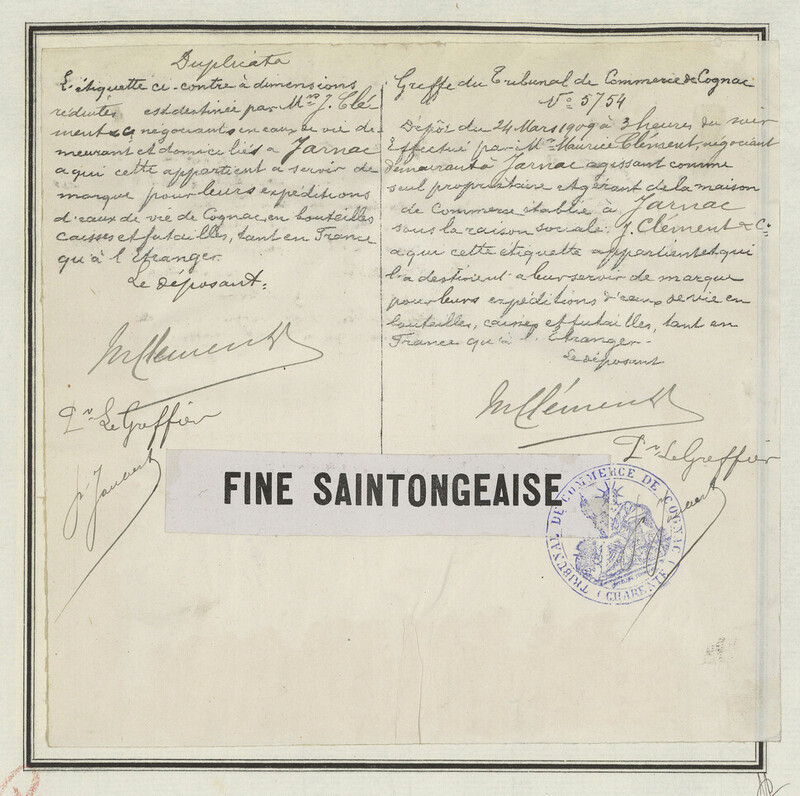 Duplicata
L'étiquette ci-contre à dimensions
réduites est destinée par Mrs J. Clé
ment & Cie négociants en eaux de vie de
meurant et domiciliés à Jarnac
a qui cette appartient a servir de
marque pour leurs expéditions
d'eaux de vie de Cognac, en bouteilles
caisses et futailles, tant en France
qu'à l'Etranger.
Le déposant:
M Clément
Pr Le Greffier
Greffe du Tribunal de Commerce de Cognac
No 5754
Dépôt du 24 Mars 1909 à 3 heures du soir
Effectué par Mr Maurice Clément, négociant
demeurant à Jarnac agissant comme
seul propriétaire et gérant de la maison
de Commerce établie à Jarnac
sous la raison sociale: J. Clément & Cie
a qui cette étiquette appartient et qui
la destinent a leur servir de marque
pour leurs expéditions d'eaux de vie en
bouteilles, caisses et futailles, tant en
France qu'à l'Etranger.
Le déposant
M Clément
Pr Le Greffier
FINE SAINTONGEAISE
TRIBUNAL DE COMMERCE DE COGNAC
(CHARENTE)